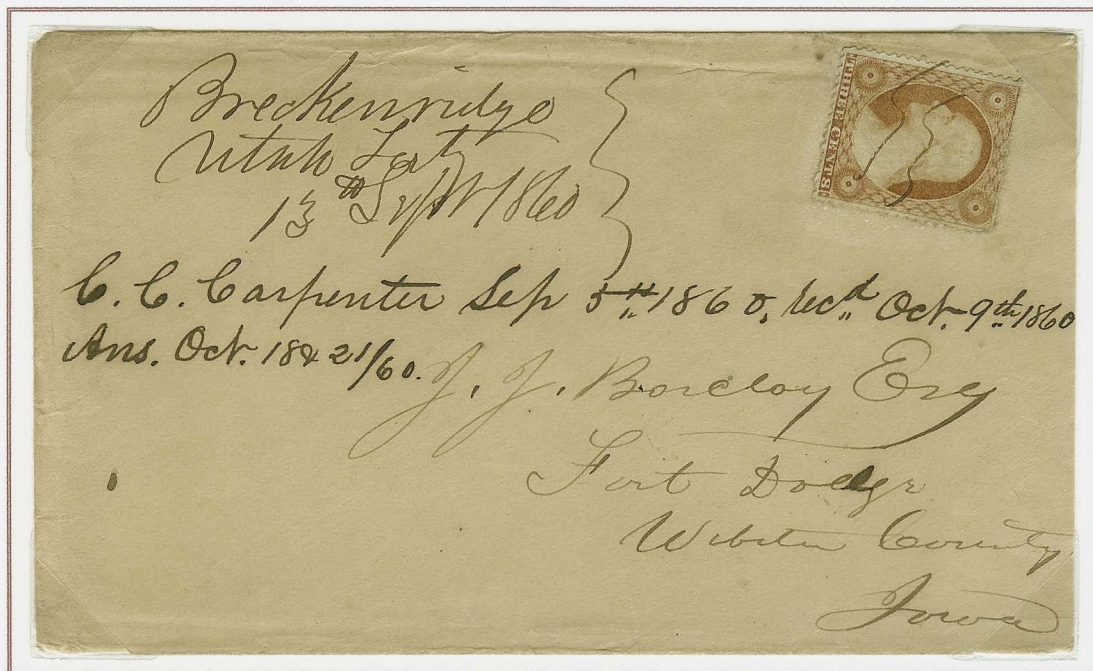 Breckenridge
Utah Ter
13th Sept 1860
THREE CENTS
C. C. Carpenter Sep 5th 1860, Rec'd Oct. 9th 1860
Ans. Oct. 18 & 21/60.
J. J. Barclay Esq
Fort Dodge
Webster County
Iowa